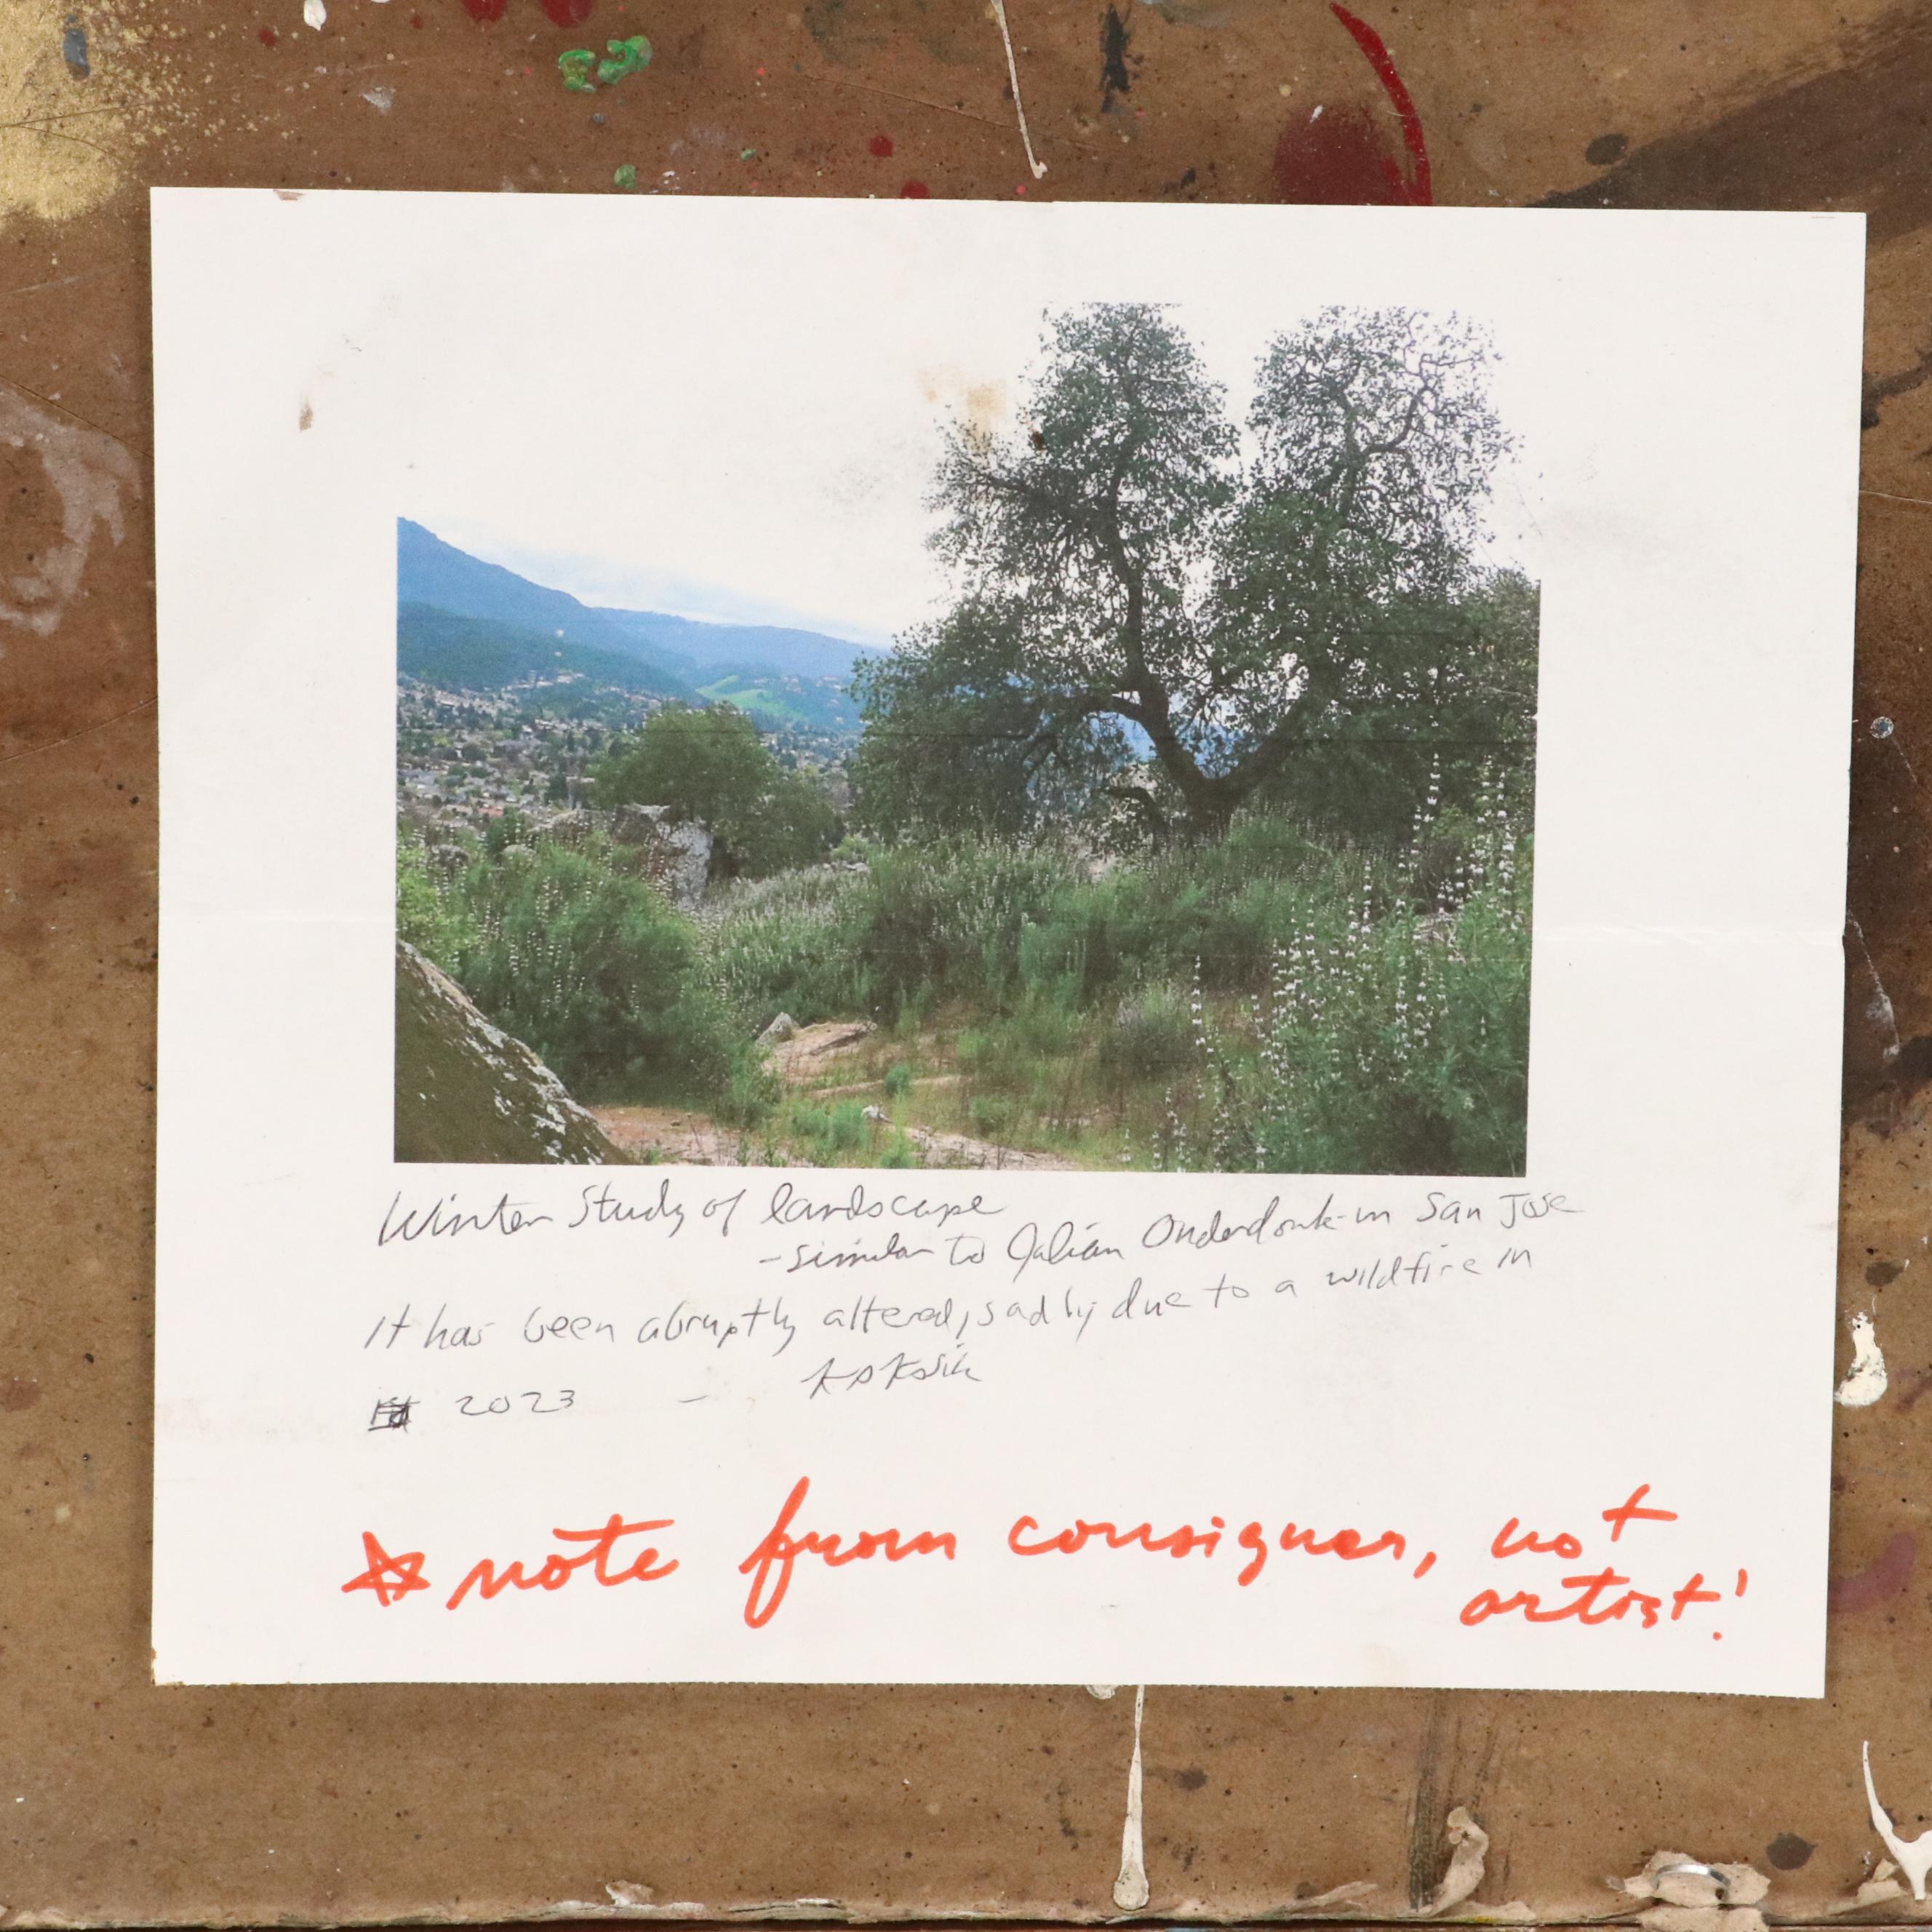 Winter Study of landscape
- similar to Julian Onderdonk - in San Jose
It has been abruptly altered, sadly due to a wildfire in
2023 -
☆ note from consigner, not
artist!